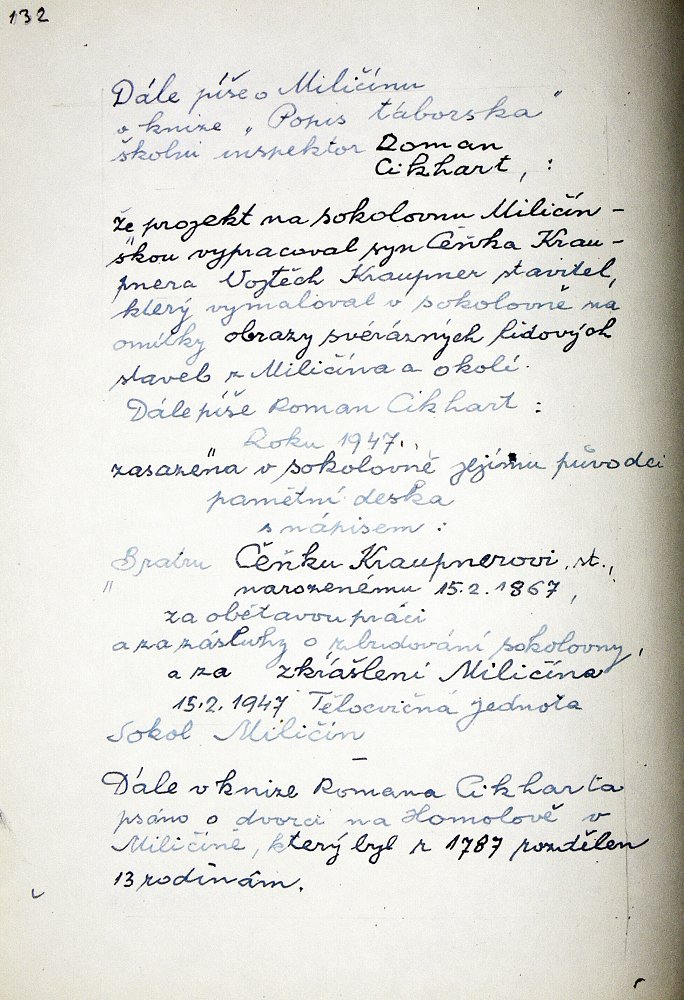 132
Dále píše o Miličínu
v knize „Popis táborska"
školní inspektor Roman
Cikhart, :
že projekt na sokolovnu Miličín-
skou vypracoval syn Čeňka Krau-
pnera Vojtěch Kraupner stavitel,
který vymaloval v sokolovně na
omítky obrazy svérázných lidových
staveb z Miličína a okolí.
Dále píše Roman Cikhart :
Roku 1947.
zasazena v sokolovně jejímu původci
pamětní deska
s nápisem :
Bratru Čeňku Kraupnerovi, st.,
" narozenému 15.2.1867,
za obětavou práci
a za zásluhy o zbudování sokolovny,
a za zkrášlení Miličína
15.2.1947 Tělocvičná jednota
Sokol Miličín
Dále v knize Romana Cikharta
psáno o dvorci na Homolově v
Miličíně, který byl r 1787 rozdělen
13 rodinám.